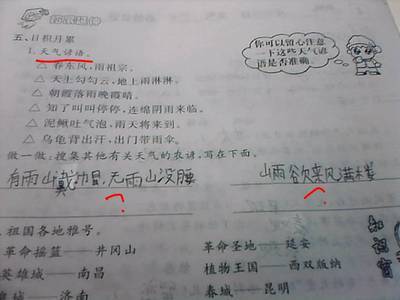 五、日积月累
1.天气谚语。
你可以留心注意
一下这些天气谚
语是否准确。
△ 春东风,雨祖宗。
△ 天上勾勾云,地上雨淋淋。
△ 朝霞落雨晚霞晴。
△ 知了叫叫停停,连绵阴雨来临。
△ 泥鳅吐气泡,雨天将来到。
△ 乌龟背出汗,出门带雨伞。
做一做:搜集其他有关天气的农谚,写在下面。
有雨山戴帽,无雨山没腰
山雨欲来风满楼
?
?
祖国各地雅号。
革命摇篮——井冈山
革命圣地——延安
英雄城——南昌
植物王国——西双版纳
城——济南
春城——昆明